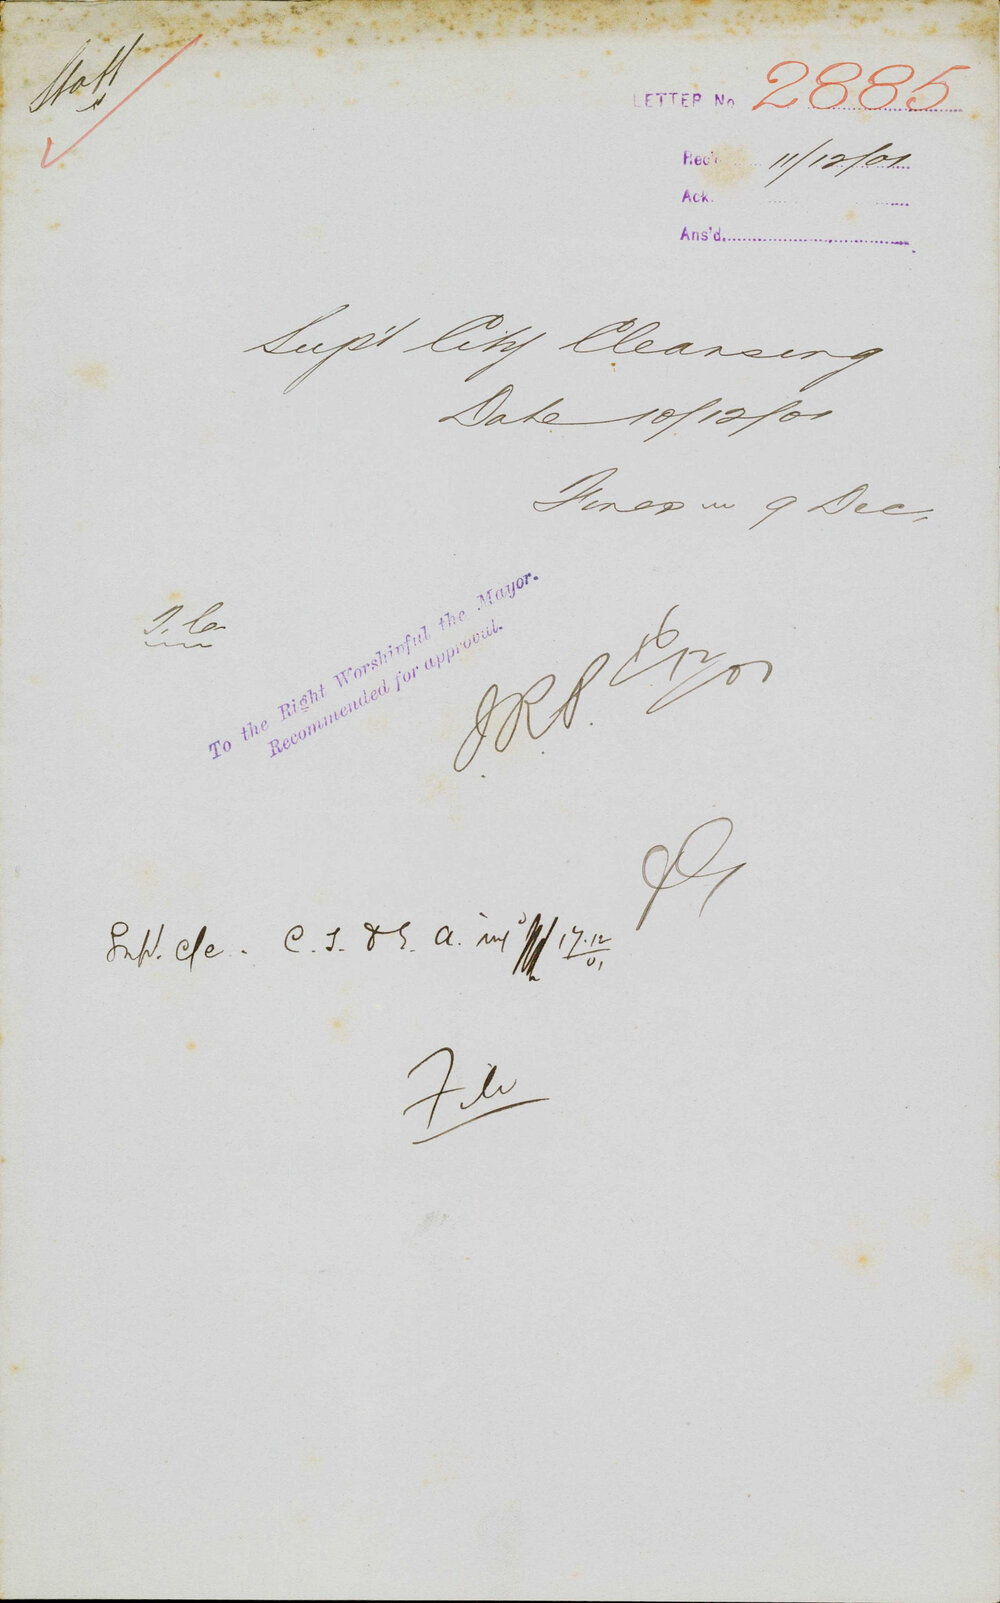 Staff
LETTER No 2885
Rec'd 11/12/01
Ack.
Ans'd
Supt City Cleansing
Date 10/12/01
Fines 9 Dec.
T. C.
To the Right Worshipful the Mayor.
Recommended for approval.
J.R.P. 16/12/01
Supt. c/c. C. S. & S. A. 17.12/01
File